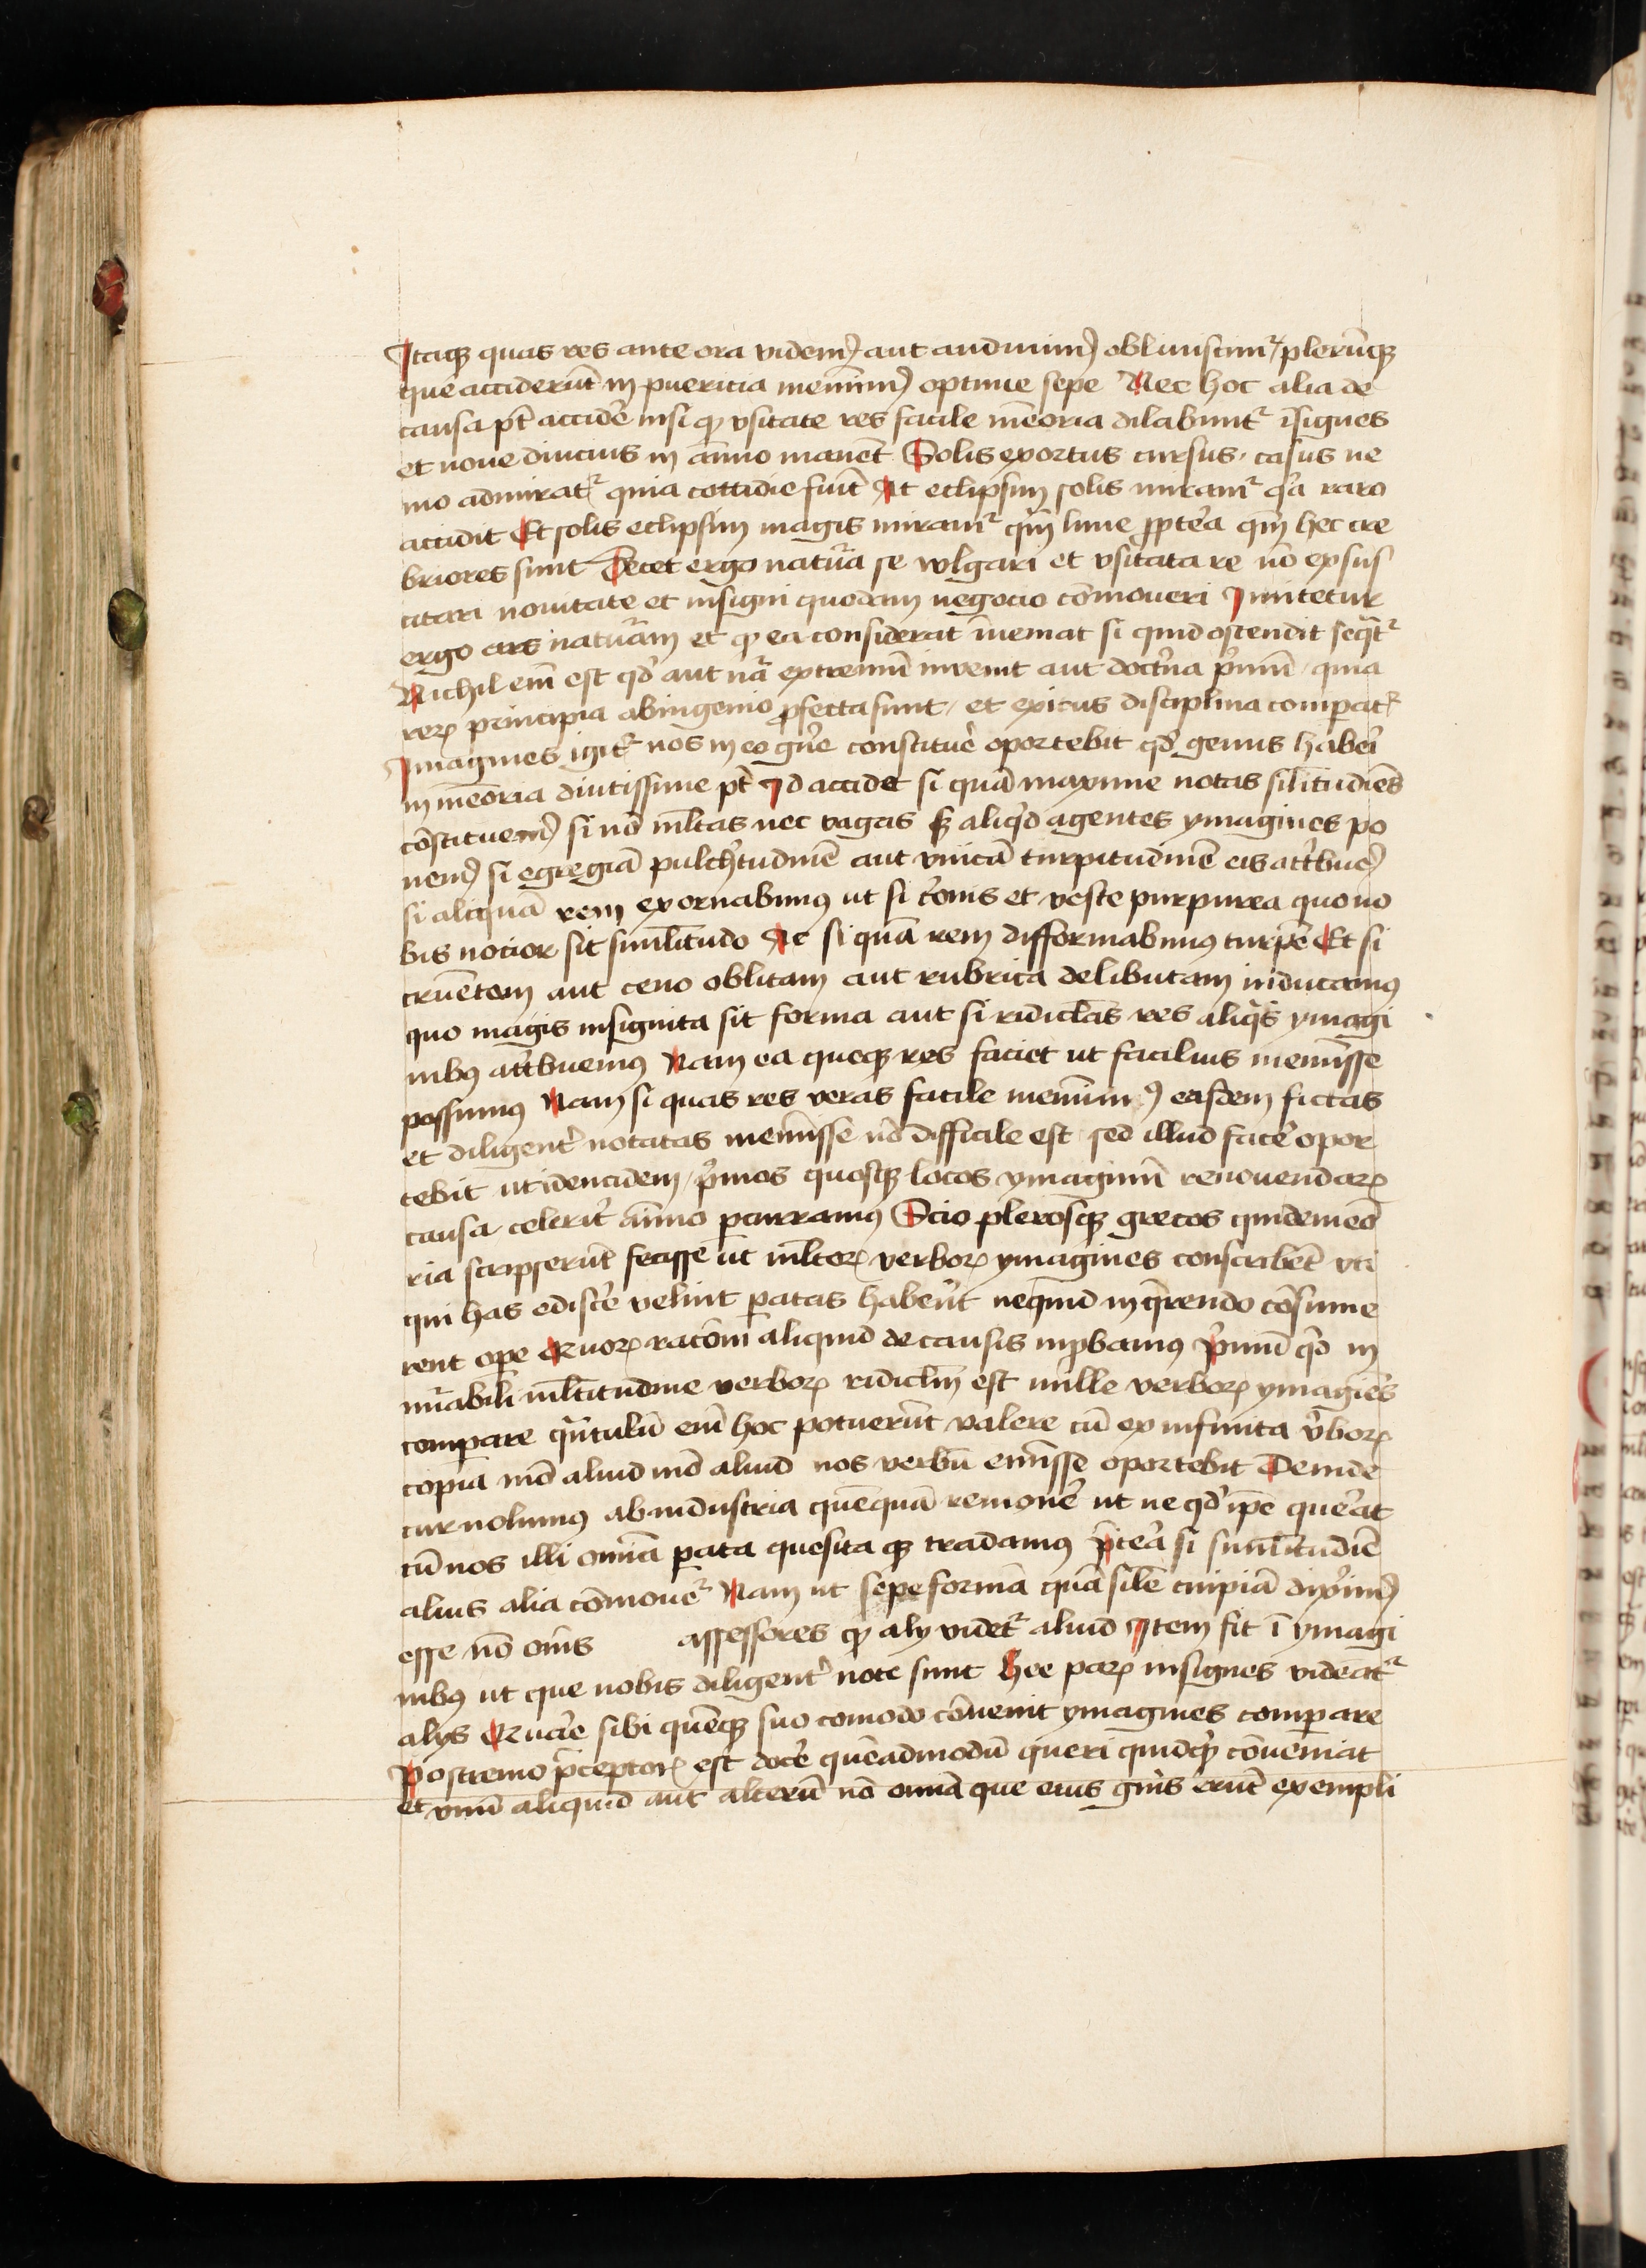 Itaqꝫ quas res ante ora videmꝰ aut audiuimꝰ obliuiscimr̉ plerūqꝫ
que acciderūt in puericia meminimꝰ optime sepe Nec hoc alia de
causa pt̄ accidē nisi qꝫ vsitate res facile mēoria dilabuntr̉ īsignes
et noue diucius in aīmo manēt Solis exortus cursus casus ne
mo admiratr̉ quia cottidie fiūt At eclipsim solis miramr̉ qͥa raro
accidit Et solis eclipsim magis miramr̉ qͣm lune ꝓptea qm̄ hec cre
briores sunt Docet ergo natura se wlgari et vsitata re nō exsus
citari nouitate et insigni quodam negocio cōmoueri Imitetur
ergo ars naturam et qꝫ ea considerat inueniat si quid ostendit seqͣtr̉
Nichil em̄ est qd̓ aut nā extremū invenit aut doctͥna pͥmū quia
reꝝ principia ab ingenio ꝓfecta sunt et exitus disciplina comparatr̉
Imagines igitr̉ nos in eo gn̄e constituē oportebit qd̓ genus haberi
in mēoria diutissime pt̄ Id accidet si quā maxime notas silitudiēs
cōstituemꝰ si nō ml̄tas nec vagas sꝫ aliqͥd agentes ymagines po
nemꝰ si egregiā pulchͥtudinē aut vnicā turpitudinē eis attͥbuemꝰ
si aliquā rem exornabimꝰ ut si cͦonis et veste purpurea quo no
bis notior sit simil̄itudo Ac si quā rem difformabimꝰ turpē Et si
cruētam aut ceno oblitam aut rubrica delibutam inducamꝰ
quo magis insignita sit forma aut si ridicl̄as res aliqͣs ymagi
nibꝰ attͥbuemꝰ Nam ea queqꝫ res faciet ut facilius meminisse
possimꝰ Nam si quas res veras facile meminimꝰ easdem fictas
et diligent̓ notatas meminisse nō difficile est sed illud facē opor
tebit ut idencidem pͥmos quosqꝫ locos ymaginū renouendaꝝ
causa celerit̓ aīmo ꝑcurramꝰ Scio plerosqꝫ grecos qui de mēo
ria scripserūt fecisse ut ml̄toꝝ verboꝝ ymagines conscribēt vti
qui has ediscē velint ꝑatas habēnt ne quid in qͥrendo cōsume
rent ope Quoꝝ racōni aliquid de causis inꝓbamꝰ pͥmū qd̓ in
nūabili ml̄titudine verboꝝ ridiclm̄ est mille verboꝝ ymagiēs
compare qͣntulū em̄ hoc potuerūt valere cū ex infinita v̓boꝝ
copia mō aliud mō aliud nos verbū eminisse oportebit Deinde
cur nolumꝰ ab industria quēquā remouē ut ne qd̓ ipē querat
cū nos illi om̄ia ꝑata quesita qꝫ tradamꝰ p̄tea si simil̄itudiē
alius alia cōmouer̉ Nam ut sepe formā quā silē cuipiā dixͥimꝰ
esse nō om̄is assessores qꝫ aly videtr̉ aliud Item fit ī ymagi
nibꝰ ut que nobis diligent̓ note sunt hee paꝝ insignes videatr̉
alys Quare sibi quēqꝫ suo comodo cōuenit ymagines comparare
Postremo p̄ceptoꝝ est docē quēadmodū queri quidqͥ cōueniat
et vnū aliquid aut alterū nō om̄ia que eius gn̄is erūt exempli